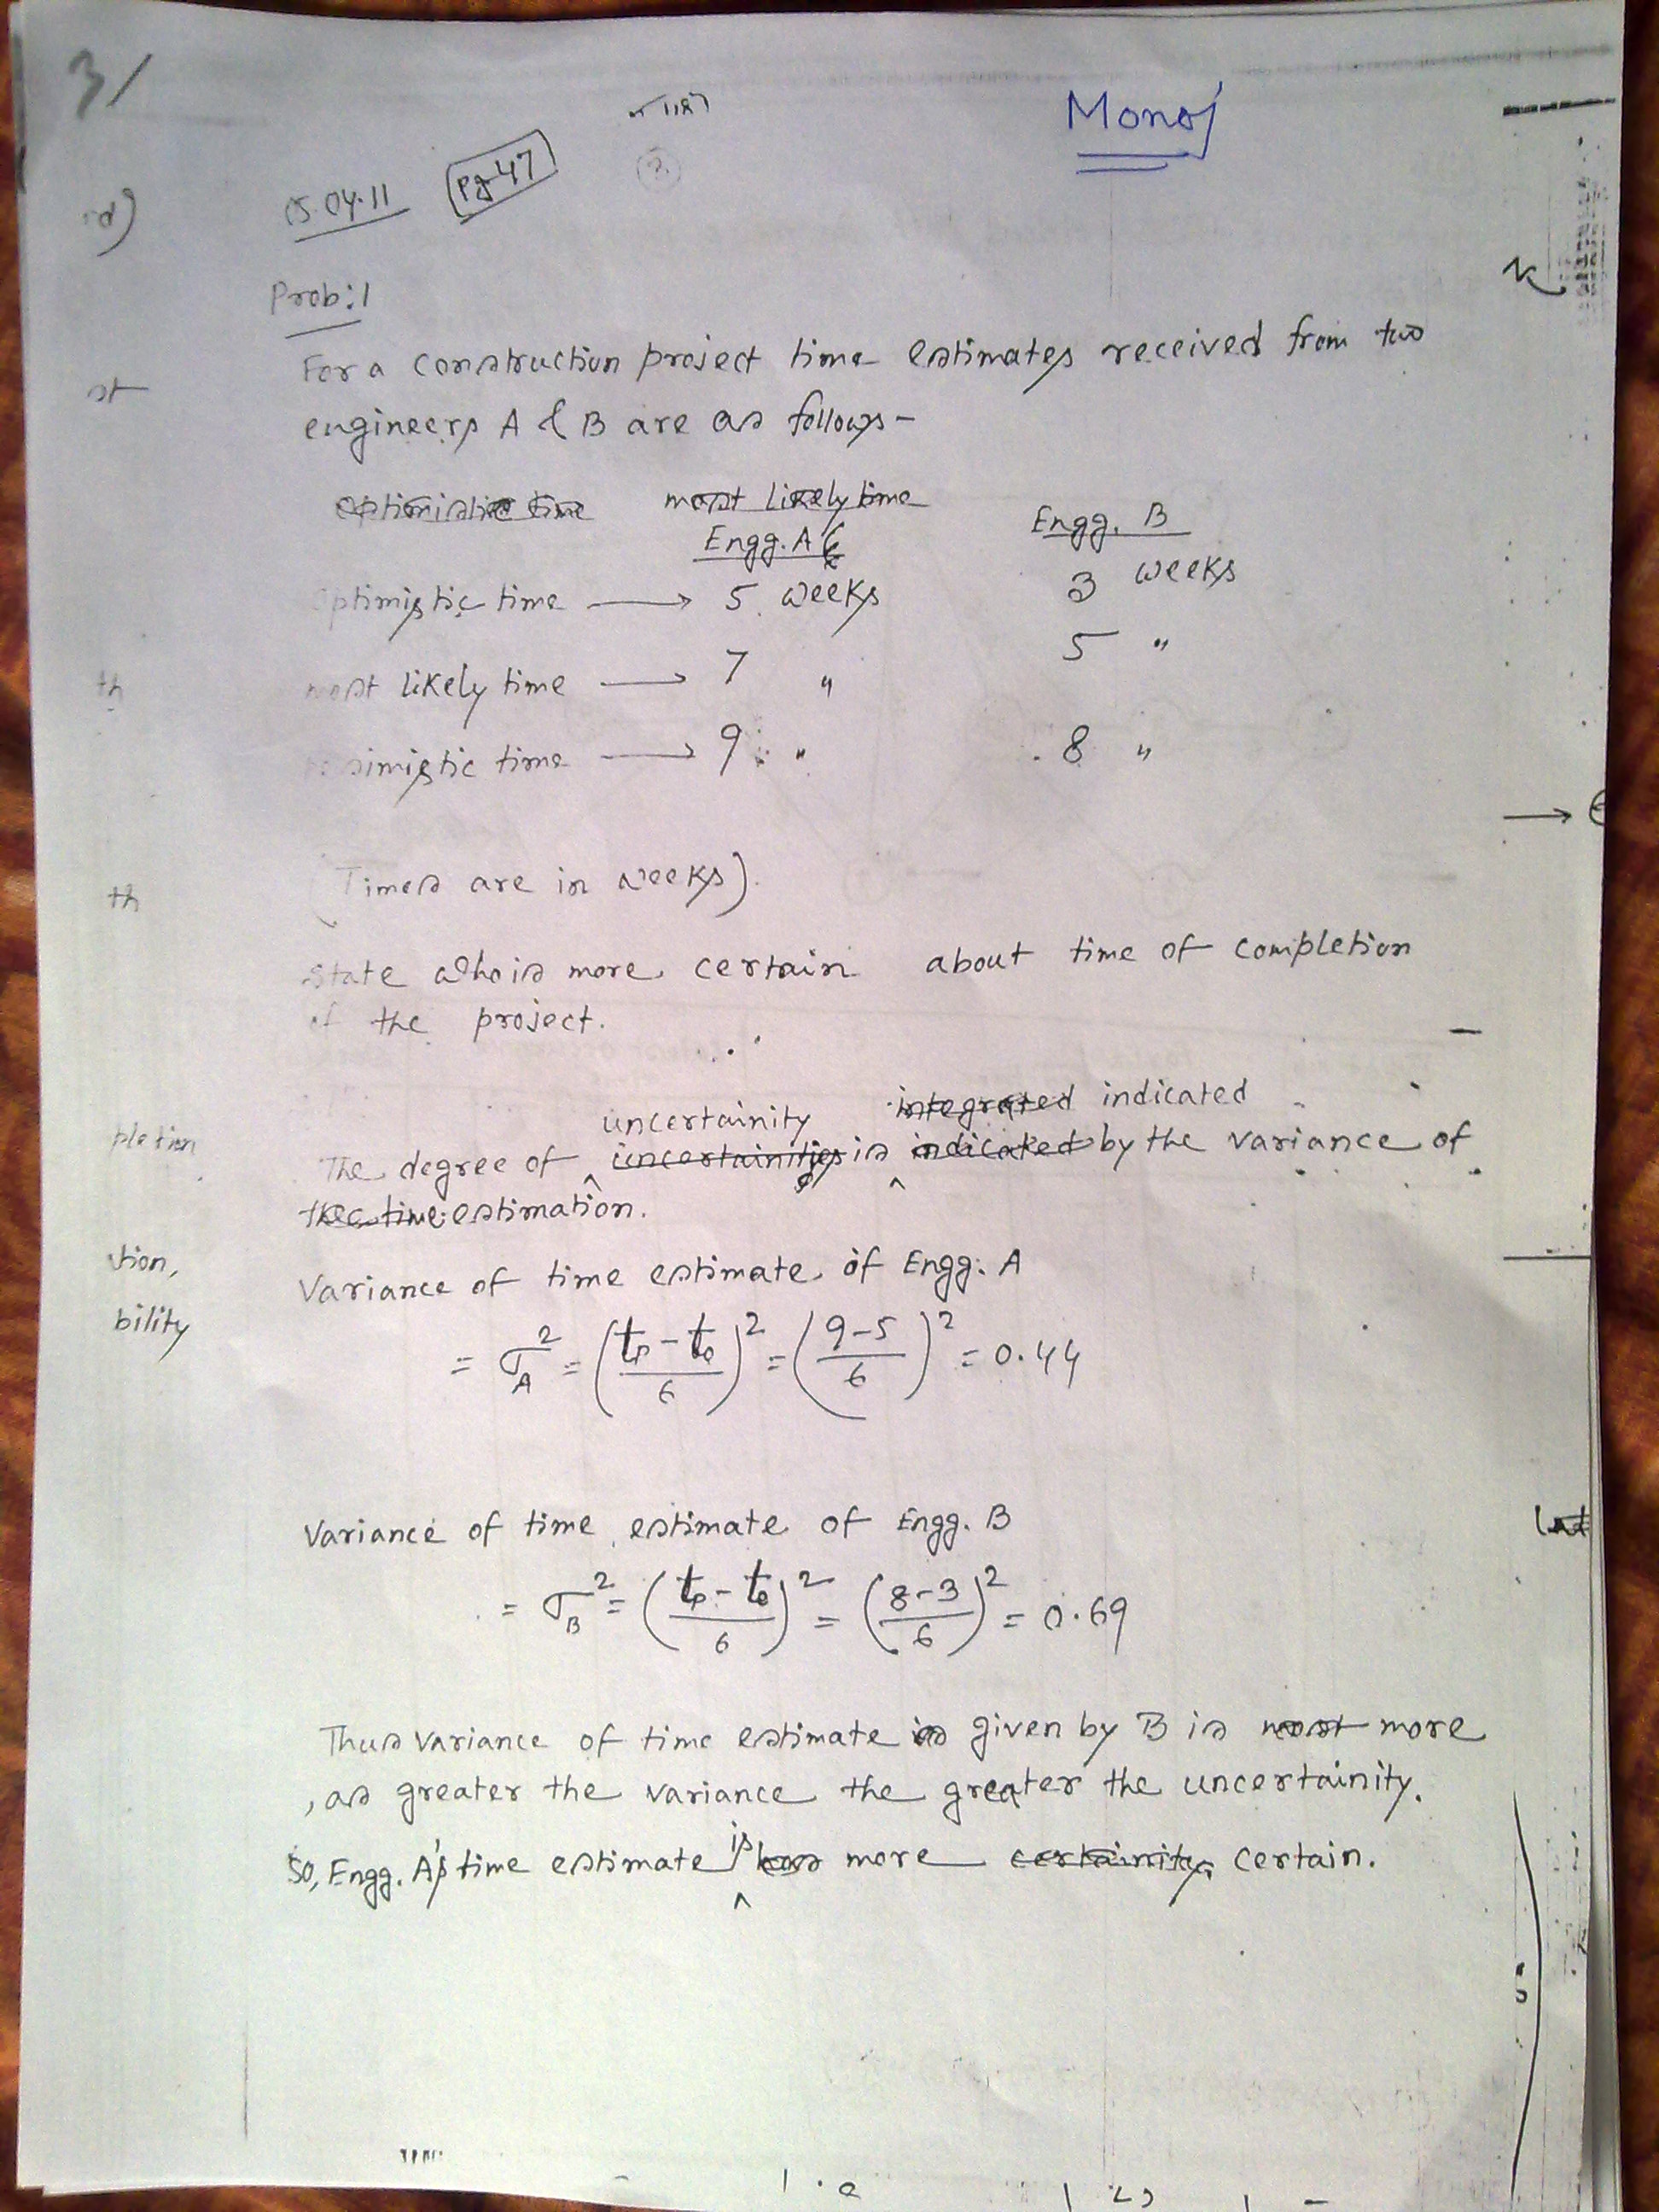 31
Monoj
05.04.11 Pg-47
Prob:1
For a construction project time estimates received from two
engineers A & B are as follows-
optimistic time most likely time
Engg. A Engg. B
optimistic time → 5 weeks 3 weeks
most likely time → 7 " 5 "
pessimistic time → 9 " 8 "
(Times are in weeks).
State who is more certain about time of completion
of the project.
uncertainity integrated indicated
The degree of uncertainities is indicated by the variance of
the time estimation.
Variance of time estimate of Engg. A
= σ_A² = ((tp - to)/6)² = ((9-5)/6)² = 0.44
Variance of time estimate of Engg. B
= σ_B² = ((tp - to)/6)² = ((8-3)/6)² = 0.69
Thus variance of time estimate is given by B is most more
, as greater the variance the greater the uncertainity.
is
So, Engg. A's time estimate has more certainity. certain.
st
th
th
pletion
tion,
bility